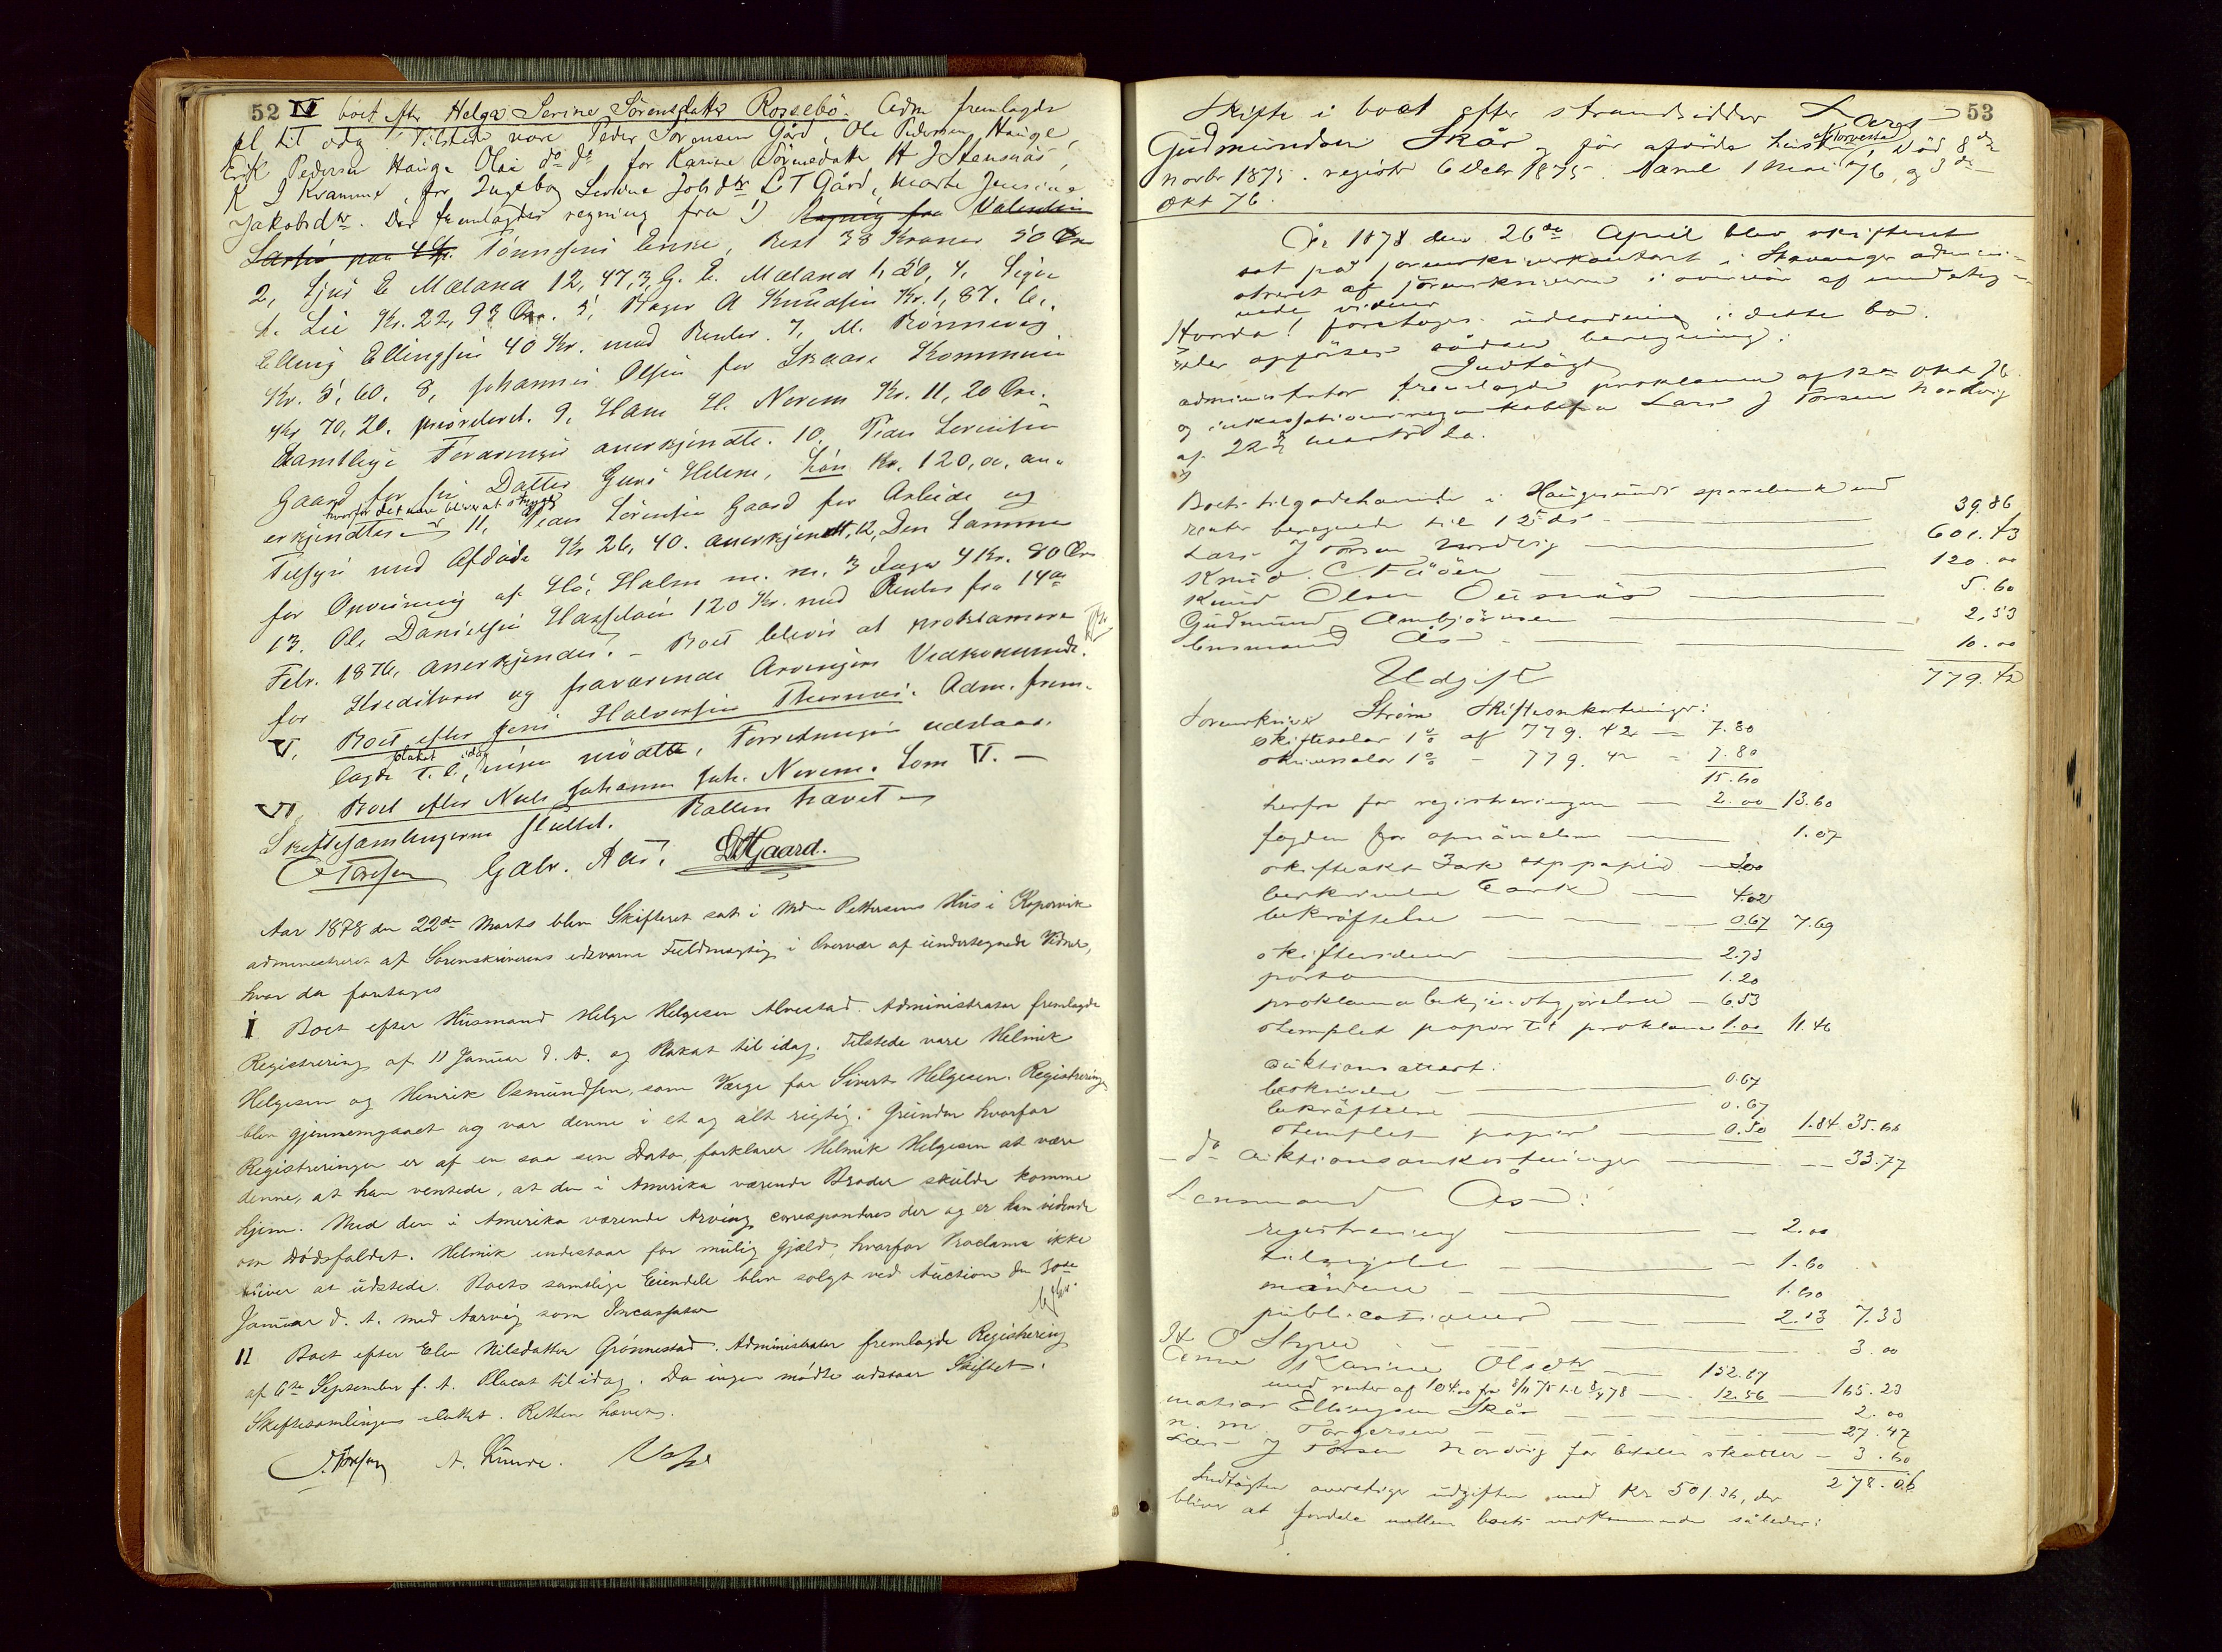 52 IV boet efter Helga Serine Sörensdatter Rossebö. Adm fremlagde
pl til idag. Tilstede vare Peder Sörensen Gård, Ole Pedersen Hauge,
Erik Pedersen Hauge Olai do do for Karine Sörensdatter H J Stensnäs,
K J Kvamme, for Ingebog Serine Jobsdtr L T Gård, Marte Jensine
Jakobsdtr. Der fremlagdes regning fra 1) Regning fra Valentin
Larsen paa 4 Tönnesens Enke, Rest 38 Kroner 50 Öre
2, Sjur E Mæland 12,47, 3, G. E. Mæland 1,50, 4,
L. Lie Kr. 22,93 Öre. 5, Hager A Knudsen Kr. 1,87. 6,
Elling Ellingsen 40 Kr. med Renter. 7, M. Rönnevig
Kr. 5,60. 8, Johannes Olsen for Skaare Kommune
Kr. 70,20. prioriteret. 9, Hans H. Norem Kr. 11,20 Öre.
Samtlige Fordringer anerkjendte. 10. Peder Sörensen
Gaard for sin Datter Guri Helene, Lön Kr. 120,00, an-
hvorfor det kun bliver at
erkjendtes 11, Peder Sörensen Gaard for Arbeide og
Tilsyn med Afdöde Kr 26,40. anerkjendt, 12, Den Samme
for Opvisning af Hö, Halm m. m. 3 Dage 4 Kr. 80 Öre
13. Ole Danielsen 120 Kr. med Renter fra 14de
Febr. 1876, anerkjendes. - Boet bliver at proklamere
for Kreditorer og fraværende Arvinger Vedkommende.
V, Boet efter Jens Halvorsen Adm. frem-
plakat idag
lagde T. l, ingen mödte, Forretningen udstaar.
VI Boet efter Niels Johannes Joh. Norem. Som V. -
Skiftesamlingerne sluttet. Retten hævet
C Toresen Galv. Aas. D H Gaard.
Aar 1878 den 22de Marts blev Skifteret sat i Mdm Pettersens Hus i Kopervik
administreret af Sorenskriverens edsvorne Fuldmægtig i Overvær af undertegnede Vidner,
hvor da foretages
I Boet efter Husmand Helge Helgesen Alvestad. Administrator fremlagde
Registrering af 11 Januar d. A. og Plakat til idag. Tilstede vare Helmik
Helgesen og Henrik Osmundsen, som Værge for Sivert Helgesen. Registreringen
blev gjennemgaaet og var denne i et og alt rigtig. Grunden hvorfor
Registreringen er af en saa sen Dato, forklarer Helmik Helgesen at være
denne, at han ventede, at den i Amerika værende Broder skulde komme
hjem. Med den i Amerika værende Arving correspondres der og er han vidende
om Dödsfaldet. Helmik indestaar for mulig Gjæld, hvorfor Proclama ikke
bliver at udstede. Boets samtlige Eiendele blev solgt ved Auction den 30te
Januar d. A. med Aarvig som Incassator
II Boet efter Elen Nilsdatter Grönnestad. Administrator fremlagde Registrering
af 6te September f. A. Placat til idag. Da ingen mödte udstaar Skiftet.
Skiftesamlingen sluttet. Retten hævet.
C. Toresen A. Kinde.
53
Skifte i boet efter strandsidder Lars
Gudmundsen Skår og för afdöde hustru af Torvestad, död 8de
novbr 1875. registr 6 Decbr 1875. Saml 1 Mai 76, og 3de
okt 76.
År 1878 den 26de April blev skifteret
sat på sorenskriverkontoret i Stavanger admini-
streret af sorenskriveren i overvær af underteg-
nede vidner
Hvorda! foretages udlodning i dette bo.
der opföres sådan beregning:
Indtägt
administrator fremlagde proklama af 12te okt 76
og inkassationsregnskabet fra Lars J Torsen Nordvig
af 22de marts d a.
Boets tilgodehavende i Haugesunds sparebank med
renter beregnede til 12 ds 39.86
Lars J Torsen Nordvig 601.43
Knud C. 120.00
Knud Olsen 5.60
Gudmund Ambjörnsen 2,53
Lensmand Ås 10.00
Udgift 779.42
Sorenskriver Ström Skifteomkostninger:
skiftesalar 1% af 779.42 = 7.80
skriversalar 1% - 779.42 = 7.80
15.60
herfra for registreringen 2.00 13.60
fogden for opnävnelsen 1.07
skifteakt 3 ark stp papir 3.00
beskrivelse 6 ark 4.02
bekräftelse 0.67 7.69
skiftevidner 2.73
porto 1.20
proklama bekjendtgjörelse 6.53
stemplet papir til proklama 1.00 11.46
auktionsattest:
beskrivelse 0.67
bekräftelse 0.67
stemplet papir 0.50 1.84 35.66
do Auktionsomkostninger 33.77
Lensmand Ås:
registrering 2.00
tilsigelse 1.60
mändene 1.60
publicationer 2.13 7.33
O Styve 3.00
Anne Karine Olsdtr 152.67
med renter af 104.00 fra 8/11 75 til 8/4 78 12.56 165.23
Matias Ellingsen Skår 2.00
N. M. Torgersen 27.47
Lars J Torsen Nordvig for betalte skatter 3.60
278.06
Indtägten overstiger udgiften med Kr 501.36, der
bliver at fordele mellem boets vedkommende således: